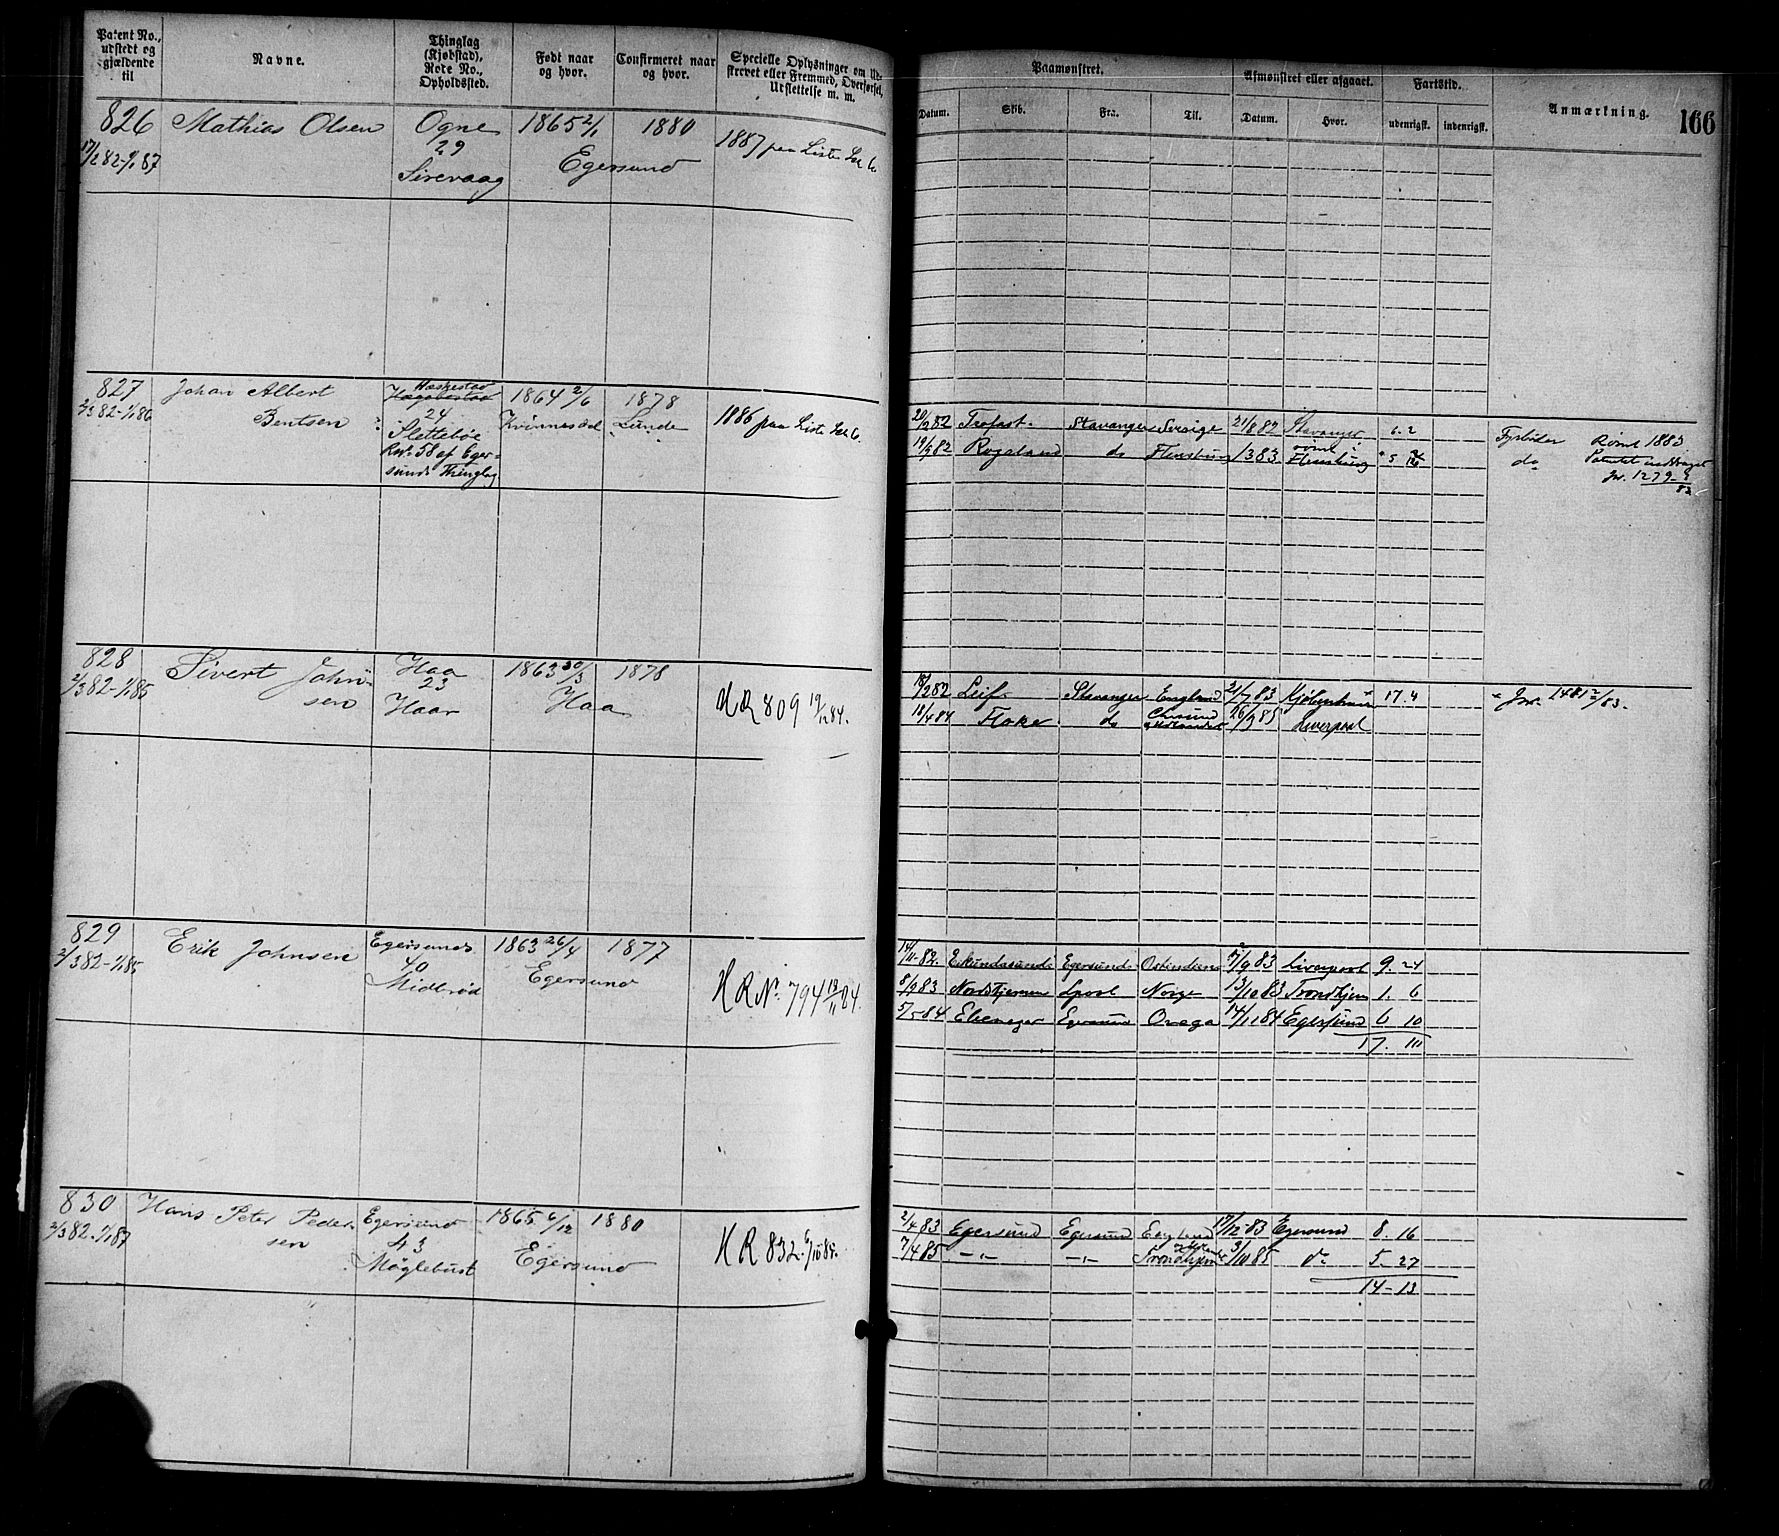 Patent No., udstedt og gjældende til
Navne.
Thinglag (Kjøbstad), Rode No., Opholdssted.
Født naar og hvor.
Confirmeret naar og hvor.
Specielle Oplysninger om Udskrevet eller Fremmed, Overførsel, Udslettelse m. m.
Paamønstret.
Afmønstret eller afgaaet.
Fartstid.
Anmærkning.
166
Datum. Skib. Fra. Til. Datum. Hvor. udenrigsk. indenrigsk.
826 Mathias Olsen Ogne 1865 2/1 1880 1887 paa Liste
17/2 82-1/1 87 29 Egersund
Sirevaag
827 Johan Albert Bentsen Haskestad 1864 2/6 1878 1886 paa Liste
2/3 82-1/1 86 24 Kvinnesdal Lunde
Slettebøe
Rno 38 af Eger=
sunds Thinglag
20/2 82 Trofast Stavanger Sverige 21/8 82 Stavanger 6. 2 Fyrbøder Rømt 1883
19/9 82 Rogaland do Flensburg 1 3 83 rømt Flensburg 5 do Patentet inddraget
Jw. 1279
828 Sivert Johnsen Haa 1863 30/3 1878 H R 809 19/12 84.
2/3 82-1/1 85 23 Haa
Haar
18/2 82 Leif Stavanger England 21/7 83 Kjøbenhavn 17. 4 Jw. 1481
18/4 84 Floker do 26/9 85 Liverpool
829 Erik Johnsen Egersund 1863 26/4 1877 H R No 794 18/11 84.
2/3 82-1/1 85 40 Egersund
Midbrød
14/11 82. Ekundasund Egersund Ostindien 7/9 83 Liverpool 9. 24
8/9 83 Nordstjernen Lpool Norge 13/10 83 Trondhjem 1. 6
5/5 84 Ebenezer Egersund Onega 14/11 84 Egersund 6 10
17. 10
830 Hans Peter Pedersen Egersund 1865 6/12 1880 H R 832
2/3 82-1/1 87 43 Egersund
Møglebust
2/4 83 Egersund Egersund England 17/12 83 Egersund 8. 16
7/4 85 -"- -"- Trondhjem 3/10 85 do 5. 27
14-13